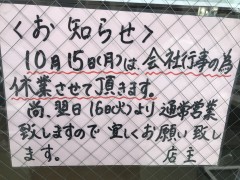 <お知らせ>
10月15日(月)は、会社行事の為
休業させて頂きます。
尚、翌日16日(火)より通常営業
致しますので宜しくお願い致し
ます。 店主